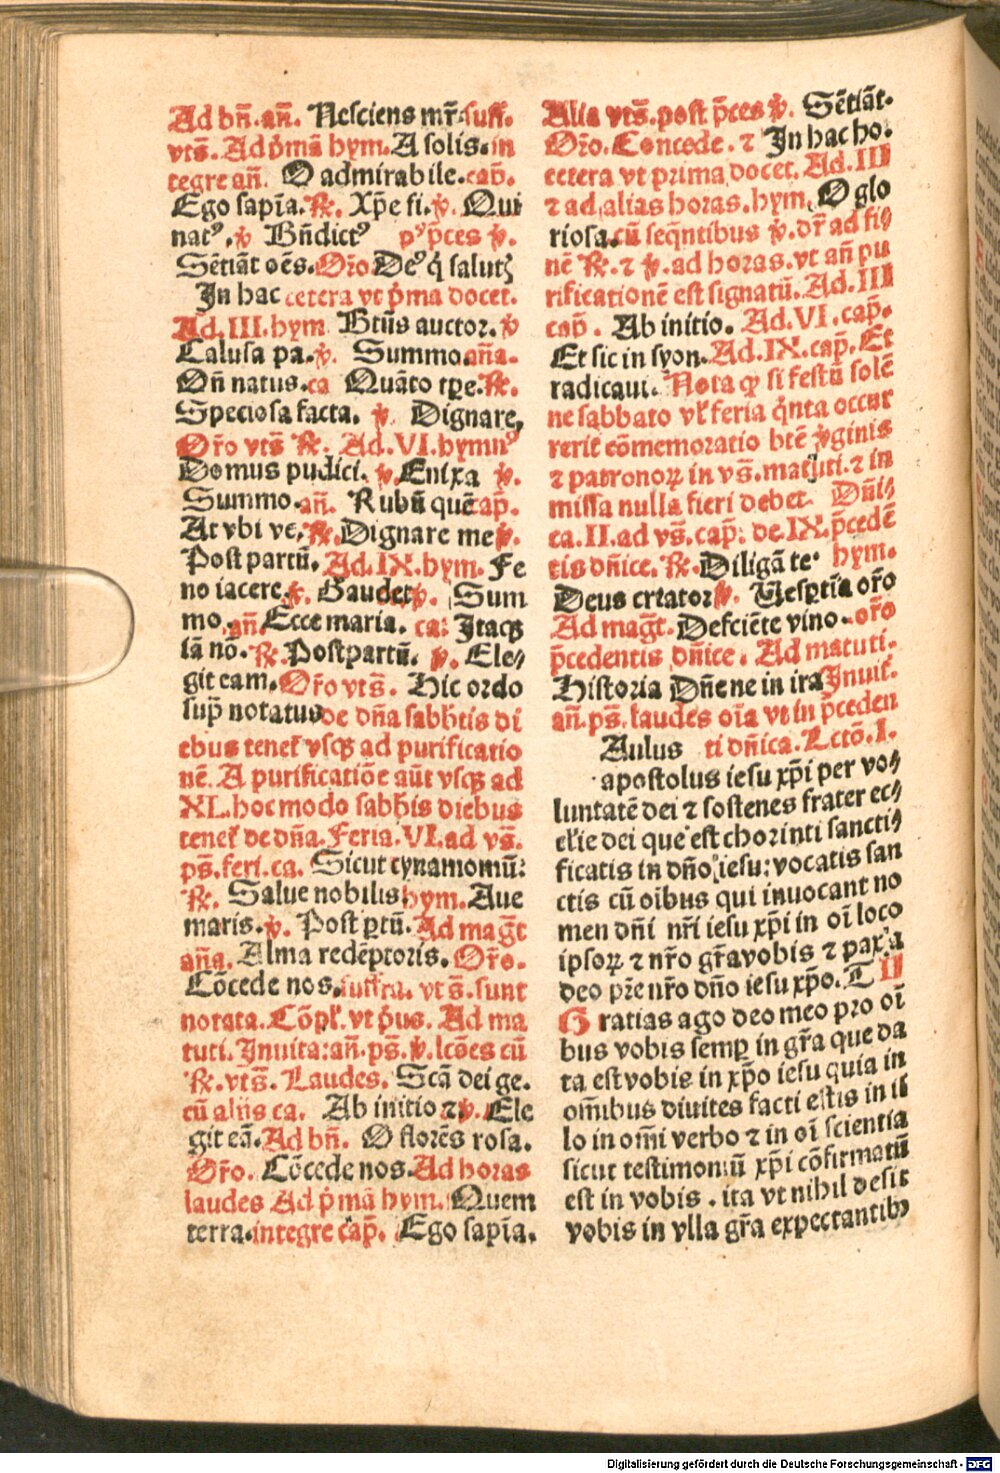 Ad bn̄. an̄. Nesciens mr̄. suff.
vts̄. Ad p̓mā hym. A solis. in
tegre an̄. O admirabile. cap̄.
Ego sapīa. ℟. Xp̄e fi. ℣. Qui
natꝰ. ℣ Bn̄dictꝰ pꝰ p̄ces ℣.
Sētiāt oēs. Or̄o Deꝰ q̓ salutꝫ
In hac cetera vt p̓ma docet.
Ad. III. hym Btūs auctor. ℣
Calusa pa. ℣. Summo. an̄a.
On̄ natus. ca Quāto tp̄e. ℟.
Speciosa facta. ℣. Dignare,
Or̄o vts̄ ℟. Ad. VI. hymnꝰ
Domus pudici. ℣. Enixa ℣.
Summo. an̄. Rubū quē cap̄.
At vbi ve. ℟. Dignare me ℣.
Post partū. Ad. IX. hym. Fe
no iacere. ℣. Gaudet ℣. Sum
mo. an̄. Ecce maria. ca: Itaqꝫ
iā nō. ℟. Post partū. ℣. Ele⸗
git eam. Or̄o vts̄. Hic ordo
sup̄ notatus de dn̄a sabb̄tis di
ebus teneꝉ vsqꝫ ad purificatio
nē. A purificatiōe aūt vsqꝫ ad
XL. hoc modo sabb̄is diebus
teneꝉ de dn̄a. Feria. VI. ad vs̄.
ps̄. feri. ca. Sicut cynamomū:
℟. Salue nobilis hym. Aue
maris. ℣. Post ꝑtū. Ad maḡt
an̄a. Alma redēptoris. Or̄o.
Cōcede nos. suffra. vts̄. sunt
norata. Cōpꝉ. vt p̓us. Ad ma
tuti. Inuita: an̄. ps̄. ℣. lcōes cū
℟. vts̄. Laudes. Scā dei ge.
cū aliis ca. Ab initio ⁊ ℣. Ele
git eā. Ad bn̄. O florēs rosa.
Or̄o. Cōcede nos. Ad horas
laudes Ad p̓mā hym. Quem
terra. integre cap̄. Ego sapīa.
Alia vts̄. post p̄ces ℣. Sētiāt.
Or̄o. Concede. ⁊ In hac ho.
cetera vt prima docet. Ad. III
⁊ ad alias horas. hym. O glo
riosa. cū seq̄ntibus ℣. dr̄ ad fi⸗
nē ℟. ⁊ ℣. ad horas. vt an̄ pu
rificationē est signatū. Ad. III
cap̄. Ab initio. Ad. VI. cap̄.
Et sic in syon. Ad. IX. cap̄. Et
radicaui. Nota ꝙ si festū solē
ne sabbato vꝉ feria q̓nta occur
rerit cōmemoratio btē ℣ginis
⁊ patronoꝝ in vs̄. matuti. ⁊ in
missa nulla fieri debet. Dn̄i⸗
ca. II. ad vs̄. cap̄: de. IX. p̄cedē
tis dn̄ice. ℟. Diligā te. hym.
Deus creator ℣. Vesꝑtīa or̄o
Ad maḡt. Defciēte vino. or̄o
p̄cedentis dn̄ice. Ad matuti.
Historia Dn̄e ne in ira Inuiꝉ.
an̄. ps̄. laudes oīa vt in p̄ceden
Aulus ti dn̄ica. Lctō. I.
apostolus iesu xp̄i per vo⸗
luntatē dei ⁊ sostenes frater ec⸗
cꝉie dei que est chorinti sancti⸗
ficatis in dn̄o iesu: vocatis san
ctis cū oībus qui inuocant no
men dn̄i nr̄i iesu xp̄i in oī loco
ipsoꝝ ⁊ nr̄o gr̄a vobis ⁊ pax a
deo pre nr̄o dn̄o iesu xp̄o. T II
Gratias ago deo meo pro oī
bus vobis semꝑ in gr̄a que da
ta est vobis in xp̄o iesu quia in
om̄ibus diuites facti estis in il
lo in om̄i verbo ⁊ in oī scientia
sicut testimoniū xp̄i cōfirmatū
est in vobis. ita vt nihil desit
vobis in vlla gr̄a expectantibꝰ
Digitalisierung gefördert durch die Deutsche Forschungsgemeinschaft - DFG